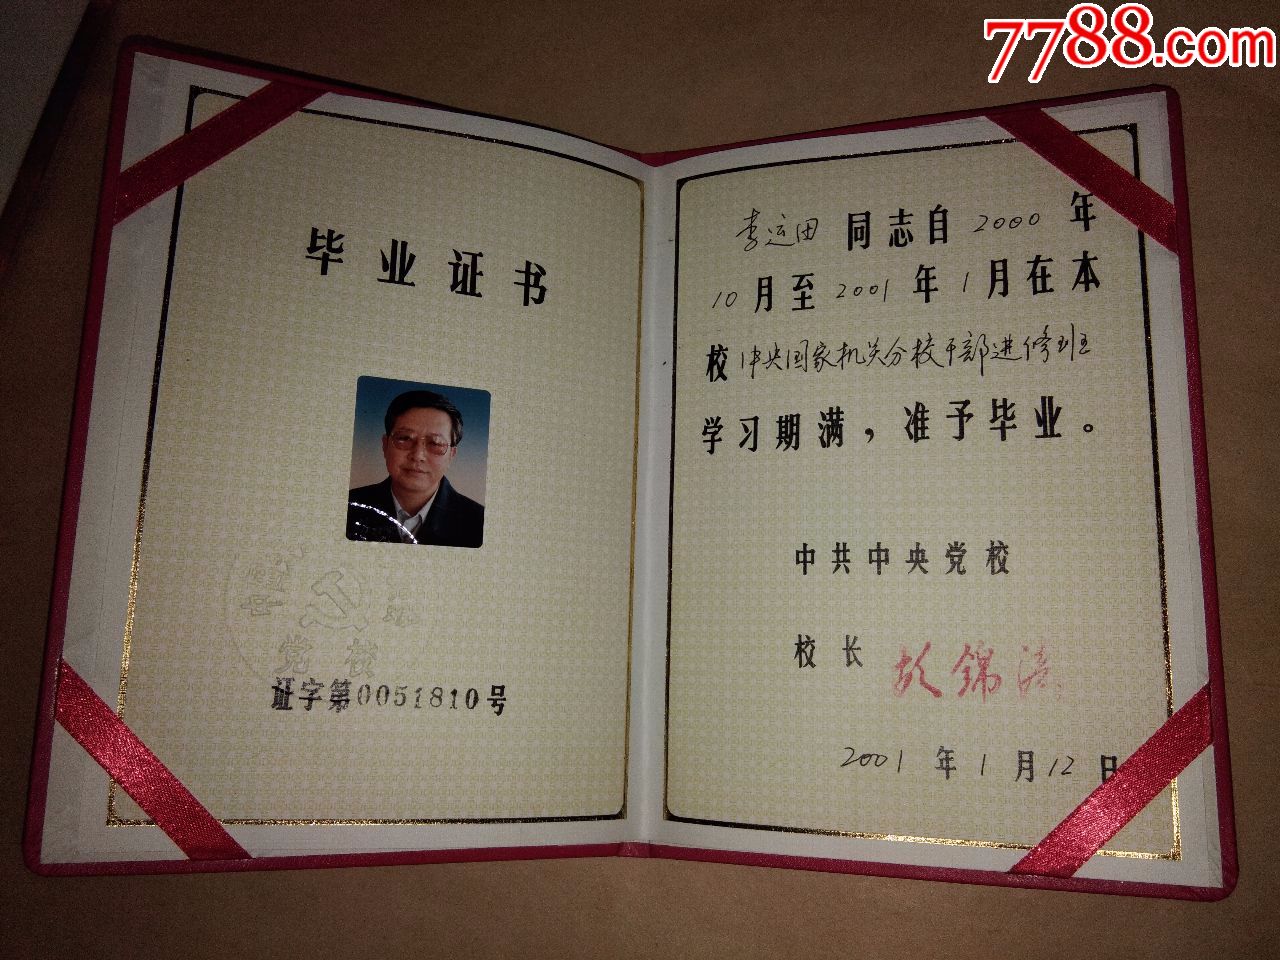 7788.com
毕业证书
党校
证字第0051810号
李运田同志自2000年
10月至2001年1月在本
校中央国家机关分校干部进修班
学习期满，准予毕业。
中共中央党校
校长 胡锦涛
2001年1月12日